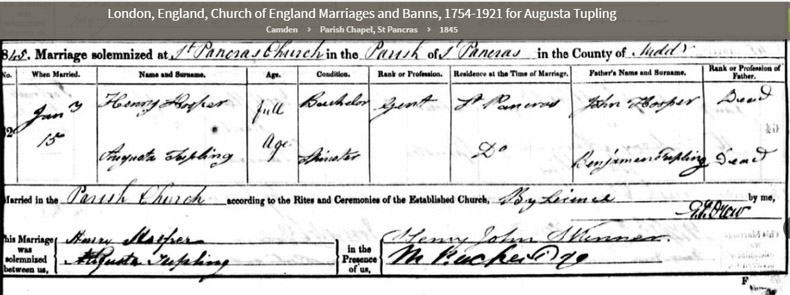 London, England, Church of England Marriages and Banns, 1754-1921 for Augusta Tupling
Camden > Parish Chapel, St Pancras > 1845
845. Marriage solemnized at St Pancras Church in the Parish of St Pancras in the County of Middx
No. When Married. Name and Surname. Age. Condition. Rank or Profession. Residence at the Time of Marriage. Father's Name and Surname. Rank or Profession of Father.
Jany Henry Hooper full Bachelor Gent St Pancras John Hooper Dead
15 Augusta Tupling Age Spinster Do Benjamin Tupling Dead
Married in the Parish Church according to the Rites and Ceremonies of the Established Church, By Licence by me,
This Marriage was solemnized between us, Henry Hooper Augusta Tupling in the Presence of us, Henry John Skinner
F